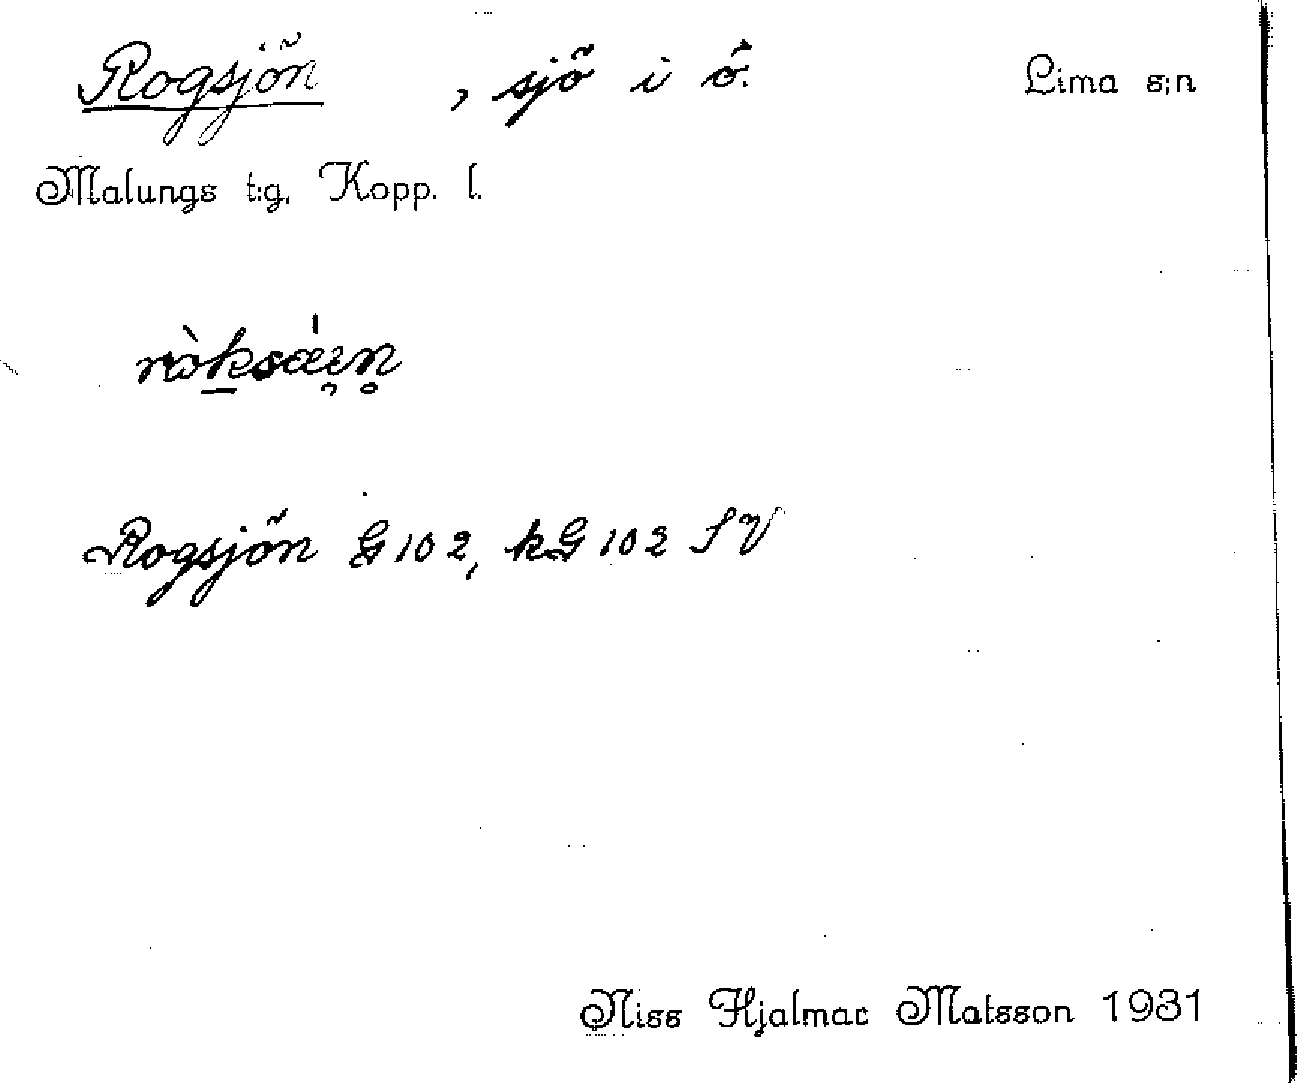 Rogsjön , sjö i ö. Lima s:n
Malungs t:g, Kopp. l.
ròksǽi̯n̥
Rogsjön G 102, kG 102 SV
Niss Hjalmar Matsson 1931